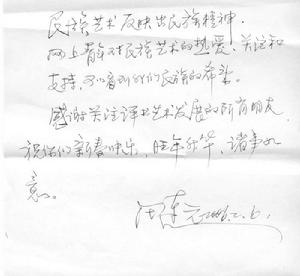 民族艺术反映出民族精神.
网上青年对民族艺术的热爱、关注和
支持,可以看到我们民族的希望。
感谢关注评书艺术发展的所有朋友.
祝你们新春快乐、旺年升华、诸事如
意。
田连元2006.2.6.